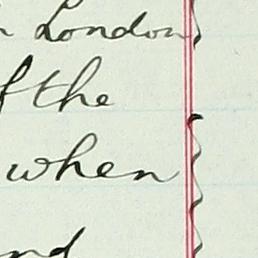 London
f the
when